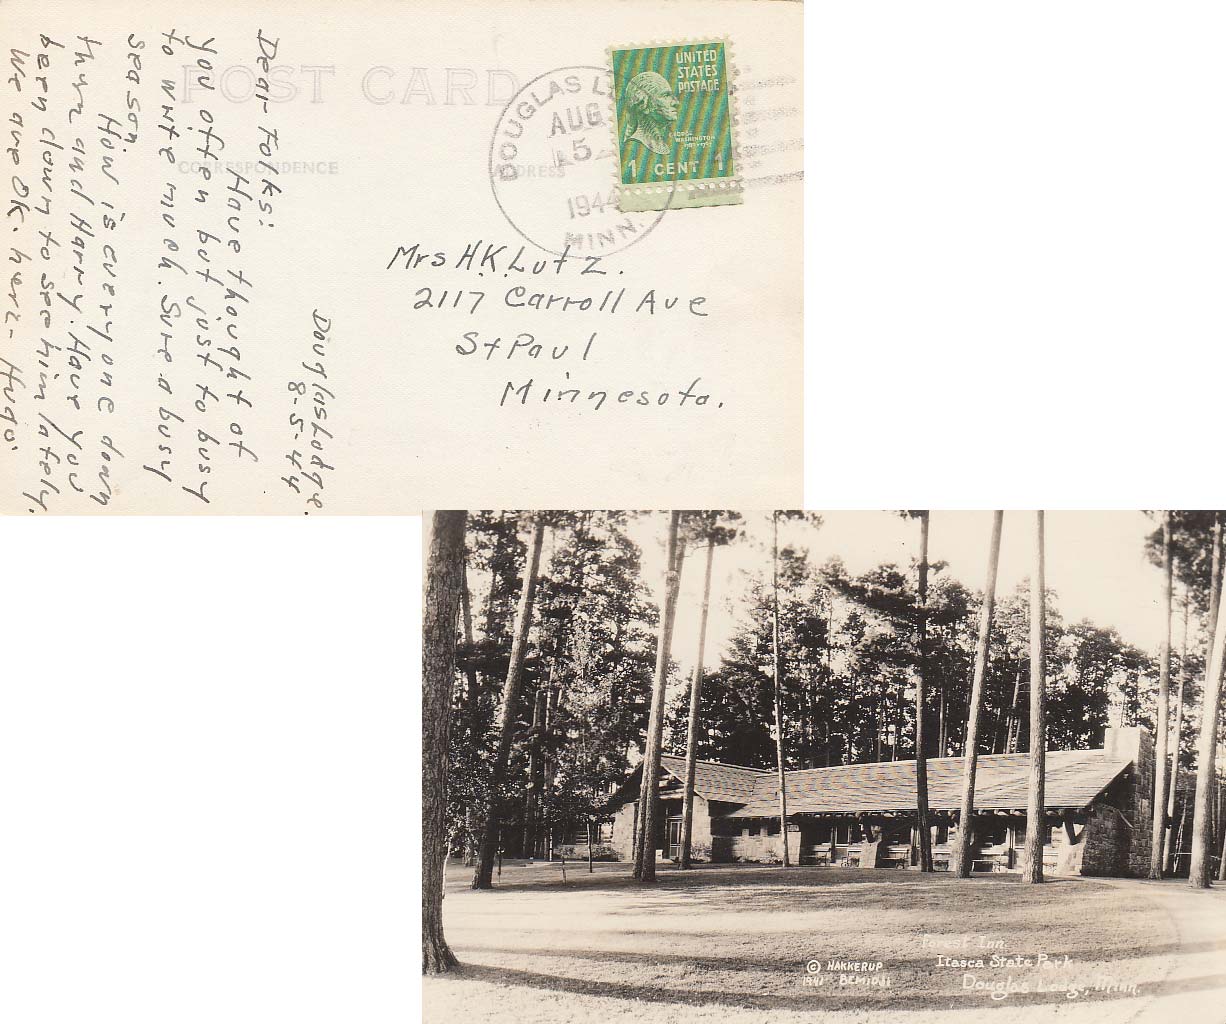 POST CARD
CORRESPONDENCE
ADDRESS
DOUGLAS
AUG
5
1944
MINN.
UNITED
STATES
POSTAGE
GEORGE
WASHINGTON
1 CENT 1
DouglasLodge.
8-5-44
Dear-Folks:
Have thought of
you often but just to busy
to write much. Sure a busy
season.
How is everyone down
there and Harry. Have you
been down to see him lately.
We are OK. here- Hugo.
Mrs H.K. Lutz.
2117 Carroll Ave
St Paul
Minnesota.
Forest Inn.
Itasca State Park
Douglas Lodge, Minn.
© HAKKERUP
1941 BEMIDJI